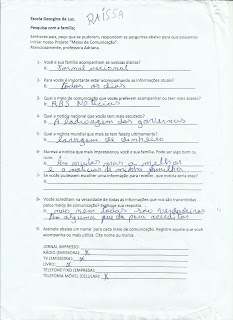 Escola Georgina da Luz.
RAISSA
Pesquisa com a família:
Senhores pais, peço que se puderem, respondam as perguntas abaixo para que possamos
iniciar nosso Projeto "Meios de Comunicação".
Atenciosamente, professora Adriana.
1- Você e sua família acompanham as notícias diárias?
R: Jornal nacional
2- Para vocês é importante estar acompanhando as informações atuais?
R: todos os dias
3- Qual o meio de comunicação que vocês preferem acompanhar ou tem mais acesso?
R: RBS Noticias
4- Qual a notícia nacional que vocês tem mais escutado?
R: A ladroagem dos governos
5- Qual a notícia mundial que mais se tem falado ultimamente?
R: Lavagem de dinheiro
6- Escreva a notícia que mais impressionou você e sua família. Pode ser algo bom ou
ruim.
R: Tem muitas mas as melhor
e a noticias de minha familia
7- Se vocês pudessem escolher uma informação para receber, que notícia seria essa?
R:
8- Vocês acreditam na veracidade de todas as informações que nos são transmitidas
pelos meios de comunicação? Explique sua resposta.
R: não nem todas são verdadeiras
tem alguma que da para acreditar
9- Assinale abaixo um nome para cada meio de comunicação. Registre aquele que você
acompanha ou mais utiliza. Cite nome ou marca.
JORNAL IMPRESSO:
RÁDIO (EMISSORA): X
TV (EMISSORA): X
LIVRO: X
TELEFONE FIXO (EMPRESA):
TELEFONIA MÓVEL (CELULAR): X